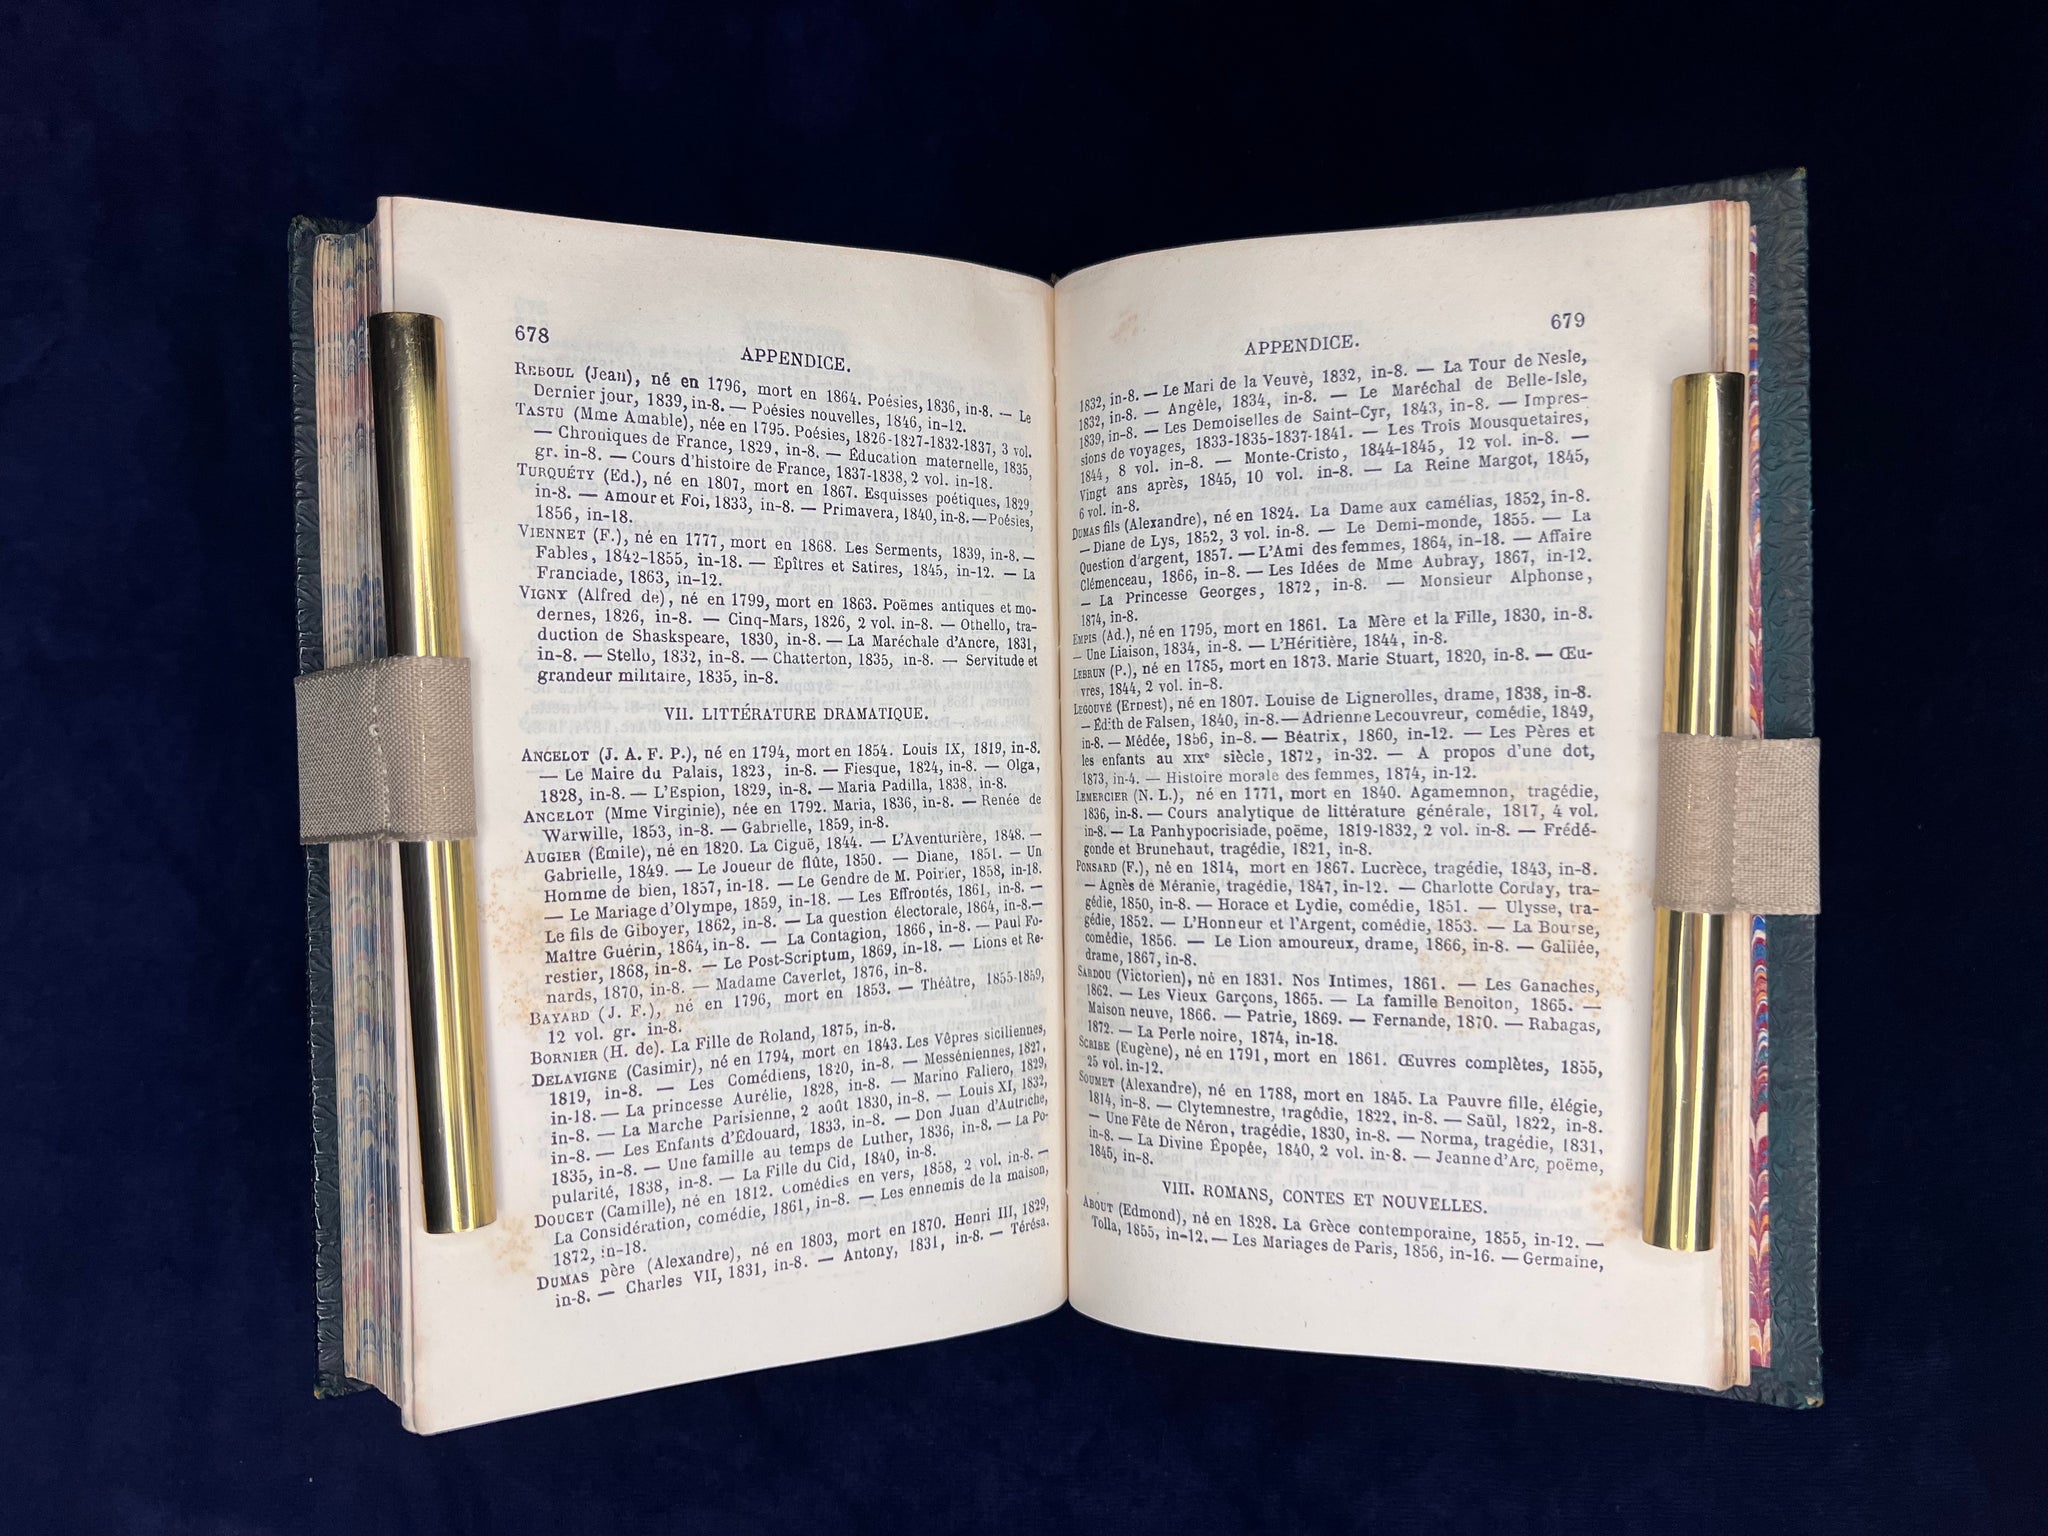 678
APPENDICE.
REBOUL (Jean), né en 1796, mort en 1864. Poésies, 1836, in-8. — Le
Dernier jour, 1839, in-8. — Poésies nouvelles, 1846, in-12.
TASTU (Mme Amable), née en 1795. Poésies, 1826-1827-1832-1837, 3 vol.
— Chroniques de France, 1829, in-8. — Éducation maternelle, 1835,
gr. in-8. — Cours d'histoire de France, 1837-1838, 2 vol. in-18.
TURQUÉTY (Ed.), né en 1807, mort en 1867. Esquisses poétiques, 1829,
in-8. — Amour et Foi, 1833, in-8. — Primavera, 1840, in-8. — Poésies,
1856, in-18.
VIENNET (F.), né en 1777, mort en 1868. Les Serments, 1839, in-8. —
Fables, 1842-1855, in-18. — Épîtres et Satires, 1845, in-12. — La
Franciade, 1863, in-12.
VIGNY (Alfred de), né en 1799, mort en 1863. Poëmes antiques et mo-
dernes, 1826, in-8. — Cinq-Mars, 1826, 2 vol. in-8. — Othello, tra-
duction de Shaskspeare, 1830, in-8. — La Maréchale d'Ancre, 1831,
in-8. — Stello, 1832, in-8. — Chatterton, 1835, in-8. — Servitude et
grandeur militaire, 1835, in-8.
VII. LITTÉRATURE DRAMATIQUE.
ANCELOT (J. A. F. P.), né en 1794, mort en 1854. Louis IX, 1819, in-8.
— Le Maire du Palais, 1823, in-8. — Fiesque, 1824, in-8. — Olga,
1828, in-8. — L'Espion, 1829, in-8. — Maria Padilla, 1838, in-8.
ANCELOT (Mme Virginie), née en 1792. Maria, 1836, in-8. — Renée de
Warwille, 1853, in-8. — Gabrielle, 1859, in-8.
AUGIER (Émile), né en 1820. La Ciguë, 1844. — L'Aventurière, 1848. —
Gabrielle, 1849. — Le Joueur de flûte, 1850. — Diane, 1851. — Un
Homme de bien, 1857, in-18. — Le Gendre de M. Poirier, 1858, in-18.
— Le Mariage d'Olympe, 1859, in-18. — Les Effrontés, 1861, in-8. —
Le fils de Giboyer, 1862, in-8. — La question électorale, 1864, in-8. —
Maître Guérin, 1864, in-8. — La Contagion, 1866, in-8. — Paul Fo-
restier, 1868, in-8. — Le Post-Scriptum, 1869, in-18. — Lions et Re-
nards, 1870, in-8. — Madame Caverlet, 1876, in-8.
BAYARD (J. F.), né en 1796, mort en 1853. — Théâtre, 1855-1859,
12 vol. gr. in-8.
BORNIER (H. de). La Fille de Roland, 1875, in-8.
DELAVIGNE (Casimir), né en 1794, mort en 1843. Les Vêpres siciliennes,
1819, in-8. — Les Comédiens, 1820, in-8. — Messéniennes, 1827,
in-18. — La princesse Aurélie, 1828, in-8. — Marino Faliero, 1829,
in-8. — La Marche Parisienne, 2 août 1830, in-8. — Louis XI, 1832,
in-8. — Les Enfants d'Édouard, 1833, in-8. — Don Juan d'Autriche,
1835, in-8. — Une famille au temps de Luther, 1836, in-8. — La Po-
pularité, 1838, in-8. — La Fille du Cid, 1840, in-8.
DOUCET (Camille), né en 1812. Comédies en vers, 1858, 2 vol. in-8. —
La Considération, comédie, 1861, in-8. — Les ennemis de la maison,
1872, in-18.
DUMAS père (Alexandre), né en 1803, mort en 1870. Henri III, 1829,
in-8. — Charles VII, 1831, in-8. — Antony, 1831, in-8. — Térésa,
679
APPENDICE.
1832, in-8. — Le Mari de la Veuve, 1832, in-8. — La Tour de Nesle,
1832, in-8. — Angèle, 1834, in-8. — Le Maréchal de Belle-Isle,
1839, in-8. — Les Demoiselles de Saint-Cyr, 1843, in-8. — Impres-
sions de voyages, 1833-1835-1837-1841. — Les Trois Mousquetaires,
1844, 8 vol. in-8. — Monte-Cristo, 1844-1845, 12 vol. in-8. —
Vingt ans après, 1845, 10 vol. in-8. — La Reine Margot, 1845,
6 vol. in-8.
DUMAS fils (Alexandre), né en 1824. La Dame aux camélias, 1852, in-8.
— Diane de Lys, 1852, 3 vol. in-8. — Le Demi-monde, 1855. — La
Question d'argent, 1857. — L'Ami des femmes, 1864, in-18. — Affaire
Clémenceau, 1866, in-8. — Les Idées de Mme Aubray, 1867, in-12.
— La Princesse Georges, 1872, in-8. — Monsieur Alphonse,
1874, in-8.
EMPIS (Ad.), né en 1795, mort en 1861. La Mère et la Fille, 1830, in-8.
— Une Liaison, 1834, in-8. — L'Héritière, 1844, in-8.
LEBRUN (P.), né en 1785, mort en 1873. Marie Stuart, 1820, in-8. — Œu-
vres, 1844, 2 vol. in-8.
LEGOUVÉ (Ernest), né en 1807. Louise de Lignerolles, drame, 1838, in-8.
— Édith de Falsen, 1840, in-8. — Adrienne Lecouvreur, comédie, 1849,
in-8. — Médée, 1856, in-8. — Béatrix, 1860, in-12. — Les Pères et
les enfants au XIXe siècle, 1872, in-32. — A propos d'une dot,
1873, in-4. — Histoire morale des femmes, 1874, in-12.
LEMERCIER (N. L.), né en 1771, mort en 1840. Agamemnon, tragédie,
1836, in-8. — Cours analytique de littérature générale, 1817, 4 vol.
in-8. — La Panhypocrisiade, poëme, 1819-1832, 2 vol. in-8. — Frédé-
gonde et Brunehaut, tragédie, 1821, in-8.
PONSARD (F.), né en 1814, mort en 1867. Lucrèce, tragédie, 1843, in-8.
— Agnès de Méranie, tragédie, 1847, in-12. — Charlotte Corday, tra-
gédie, 1850, in-8. — Horace et Lydie, comédie, 1851. — Ulysse, tra-
gédie, 1852. — L'Honneur et l'Argent, comédie, 1853. — La Bourse,
comédie, 1856. — Le Lion amoureux, drame, 1866, in-8. — Galilée,
drame, 1867, in-8.
SARDOU (Victorien), né en 1831. Nos Intimes, 1861. — Les Ganaches,
1862. — Les Vieux Garçons, 1865. — La famille Benoiton, 1865. —
Maison neuve, 1866. — Patrie, 1869. — Fernande, 1870. — Rabagas,
1872. — La Perle noire, 1874, in-18.
SCRIBE (Eugène), né en 1791, mort en 1861. Œuvres complètes, 1855,
25 vol. in-12.
SOUMET (Alexandre), né en 1788, mort en 1845. La Pauvre fille, élégie,
1814, in-8. — Clytemnestre, tragédie, 1822, in-8. — Saül, 1822, in-8.
— Une Fête de Néron, tragédie, 1830, in-8. — Norma, tragédie, 1831,
in-8. — La Divine Épopée, 1840, 2 vol. in-8. — Jeanne d'Arc, poëme,
1845, in-8.
VIII. ROMANS, CONTES ET NOUVELLES.
ABOUT (Edmond), né en 1828. La Grèce contemporaine, 1855, in-12. —
Tolla, 1855, in-12. — Les Mariages de Paris, 1856, in-16. — Germaine,